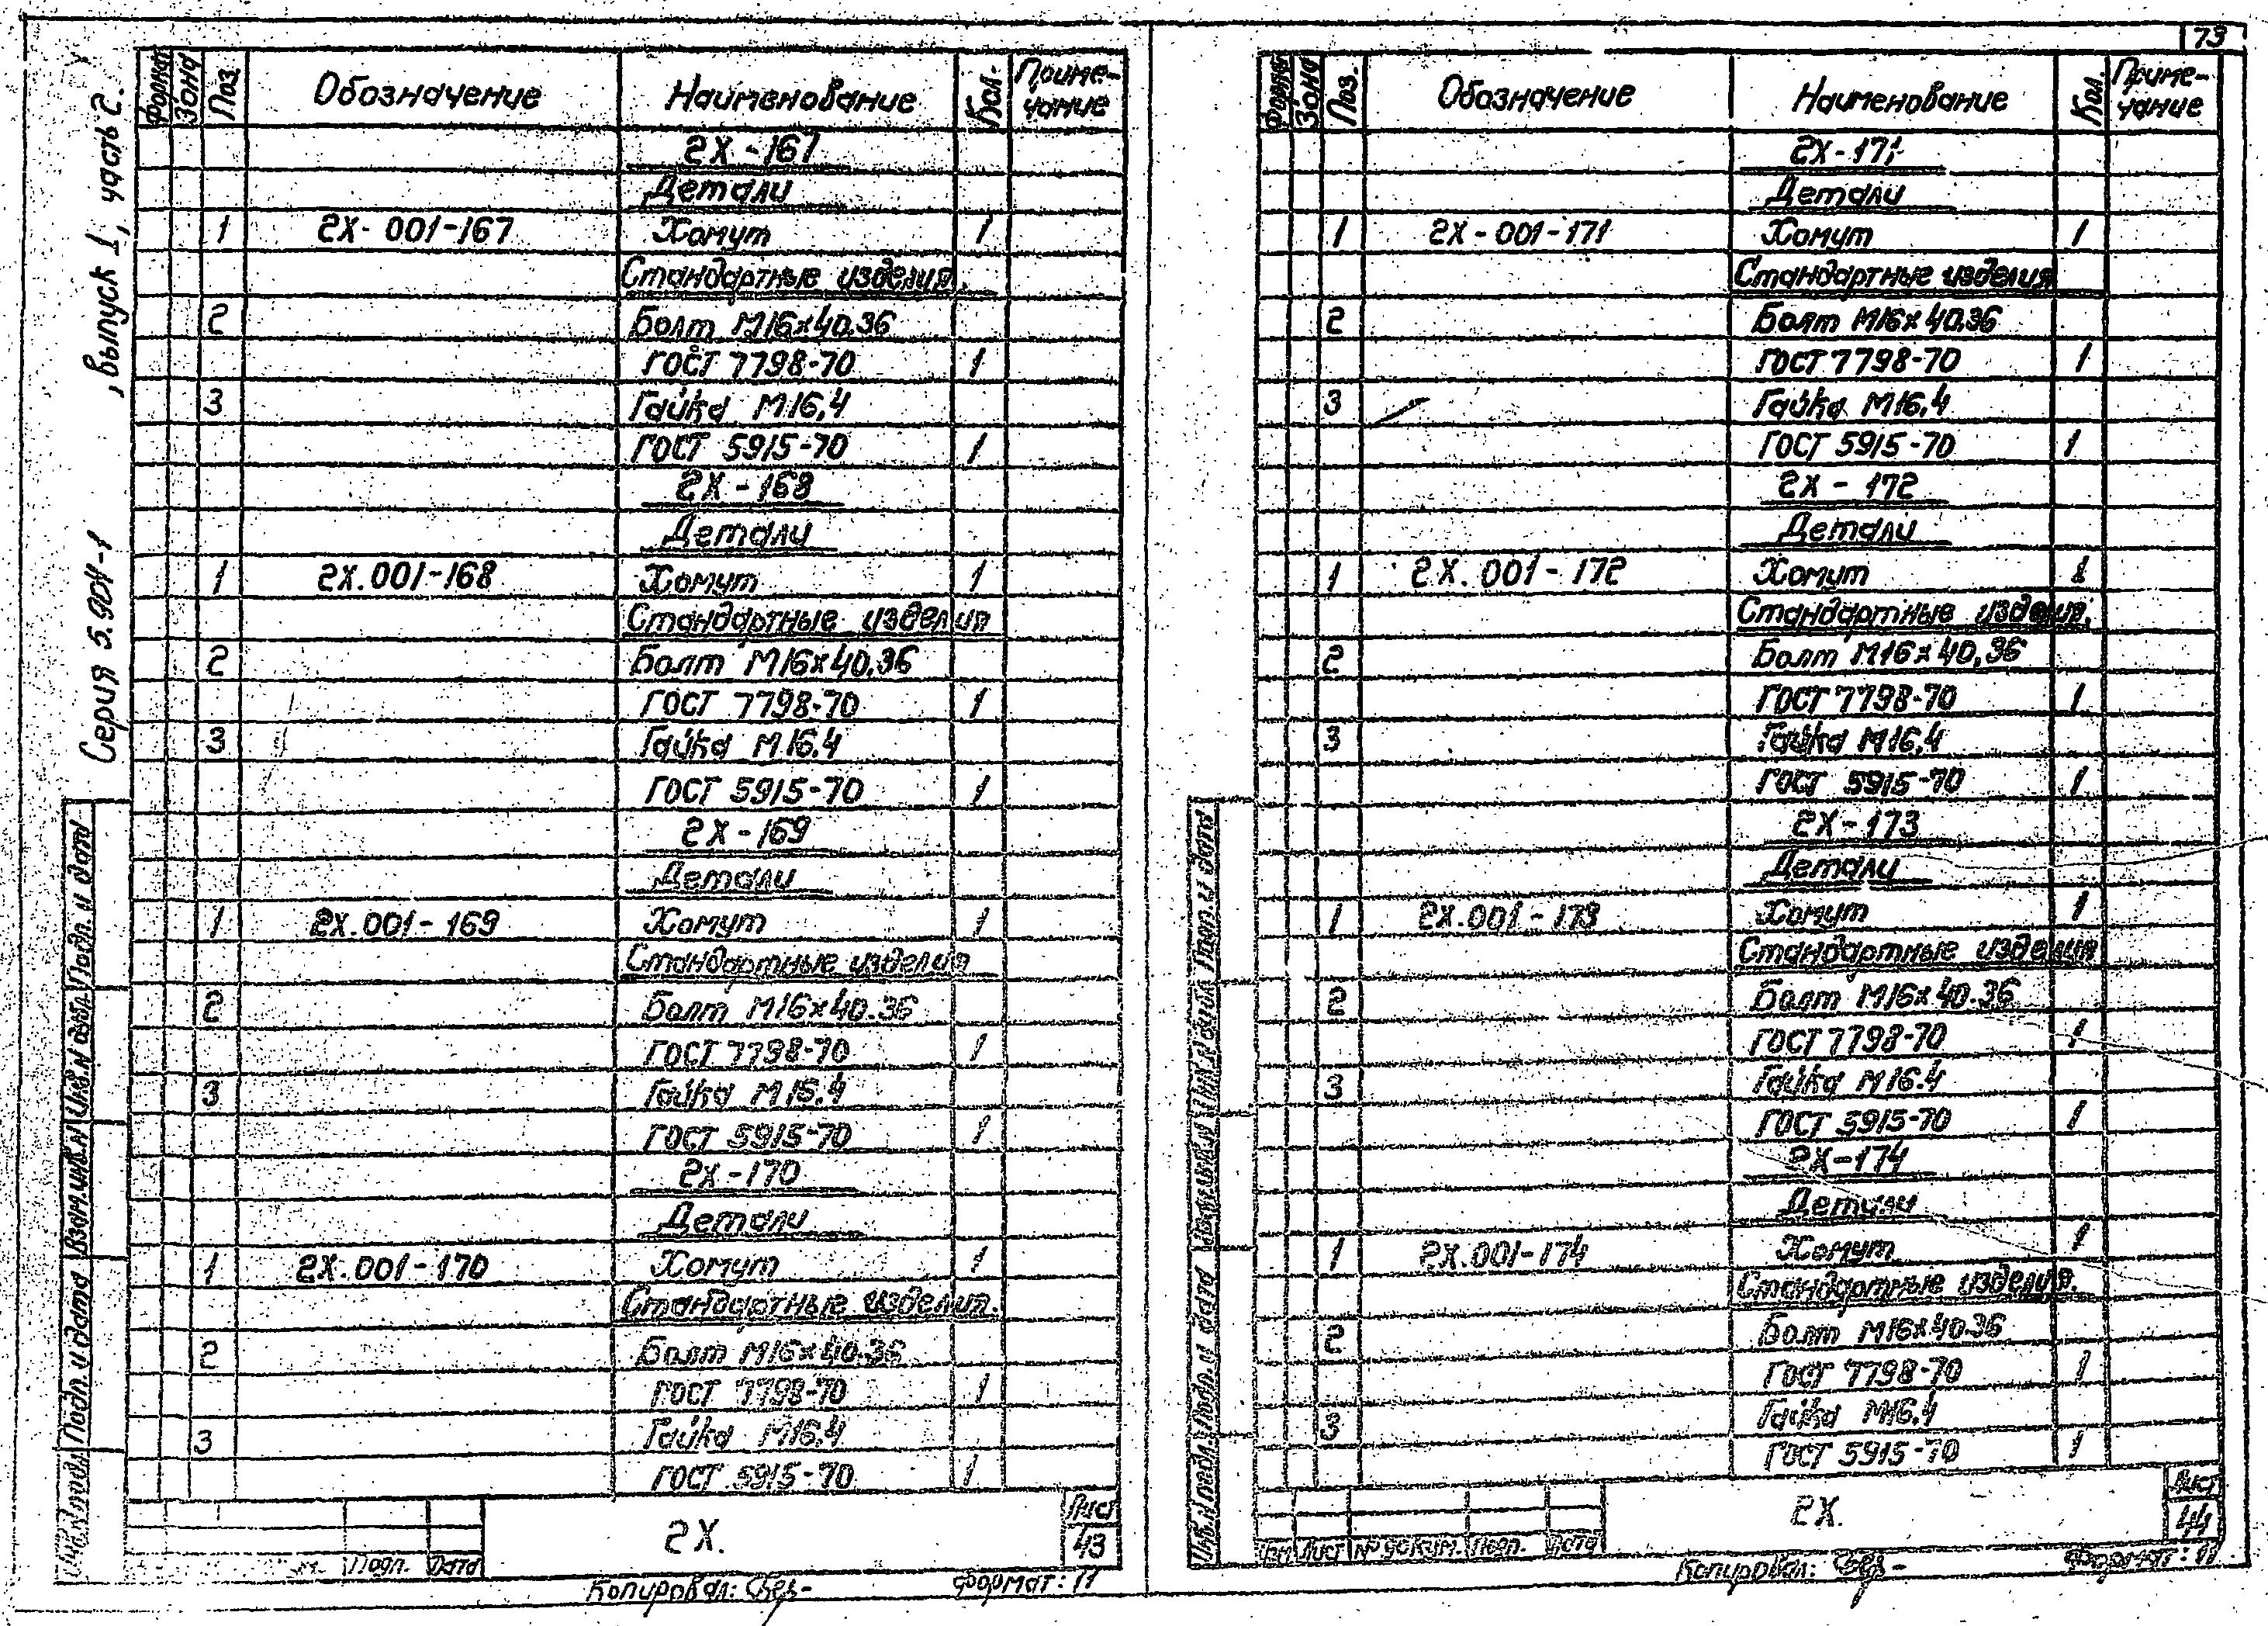 73
Серия 5.904-1 , выпуск 1, часть 2.
Формат Зона Поз. Обозначение Наименование Кол. Приме-
чание
2Х-167
Детали
1 2Х-001-167 Хомут 1
Стандартные изделия.
2 Болт М16×40.36
ГОСТ 7798-70 1
3 Гайка М16,4
ГОСТ 5915-70 1
2Х-168
Детали
1 2Х.001-168 Хомут 1
Стандартные изделия
2 Болт М16×40.36
ГОСТ 7798-70 1
3 Гайка М16.4
ГОСТ 5915-70 1
2Х-169
Детали
1 2Х.001-169 Хомут 1
Стандартные изделия
2 Болт М16×40.36
ГОСТ 7798-70 1
3 Гайка М16.4
ГОСТ 5915-70 1
2Х-170
Детали
1 2Х.001-170 Хомут 1
Стандартные изделия.
2 Болт М16×40.36
ГОСТ 7798-70 1
3 Гайка М16,4
ГОСТ 5915-70 1
Подп. и дата
Инв.N дубл.
Взам.инв.N
Подп. и дата
Инв.N подл.
Подп. Дата
2Х.
Лист
43
Копировал:
Формат: 11
Формат Зона Поз. Обозначение Наименование Кол. Приме-
чание
2Х-171
Детали
1 2Х-001-171 Хомут 1
Стандартные изделия
2 Болт М16×40.36
ГОСТ 7798-70 1
3 Гайка М16,4
ГОСТ 5915-70 1
2Х-172
Детали
1 2Х.001-172 Хомут 1
Стандартные изделия.
2 Болт М16×40,36
ГОСТ 7798-70 1
3 Гайка М16,4
ГОСТ 5915-70 1
2Х-173
Детали
1 2Х.001-173 Хомут 1
Стандартные изделия
2 Болт М16×40.36
ГОСТ 7798-70 1
3 Гайка М16.4
ГОСТ 5915-70 1
2Х-174
Детали
1 2Х.001-174 Хомут 1
Стандартные изделия.
2 Болт М16×40.36
ГОСТ 7798-70 1
3 Гайка М16,4
ГОСТ 5915-70 1
Подп. и дата
Инв.N дубл.
Взам.инв.N
Подп. и дата
Инв.N подл.
Изм Лист № докум. Подп. Дата
2Х.
Лист
44
Копировал:
Формат: 11